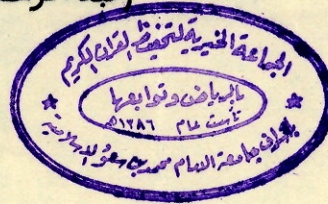 الجماعة الخيرية لتحفيظ القرآن الكريم
بالرياض وتوابعها
تأسست عام ١٣٨٦هـ
بإشراف جامعة الامام محمد بن سعود الاسلامية